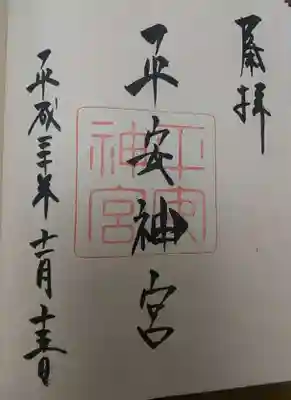 奉拝
平安神宮
平成三十年十一月
平安神宮